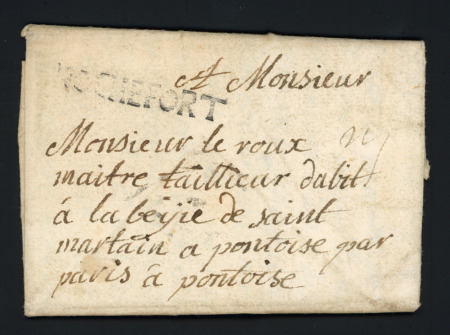 A Monsieur
ROCHEFORT
Monsieur le roux
maitre taillieur dabit
á la beijie de saint
martain a pontoise par
paris á pontoise